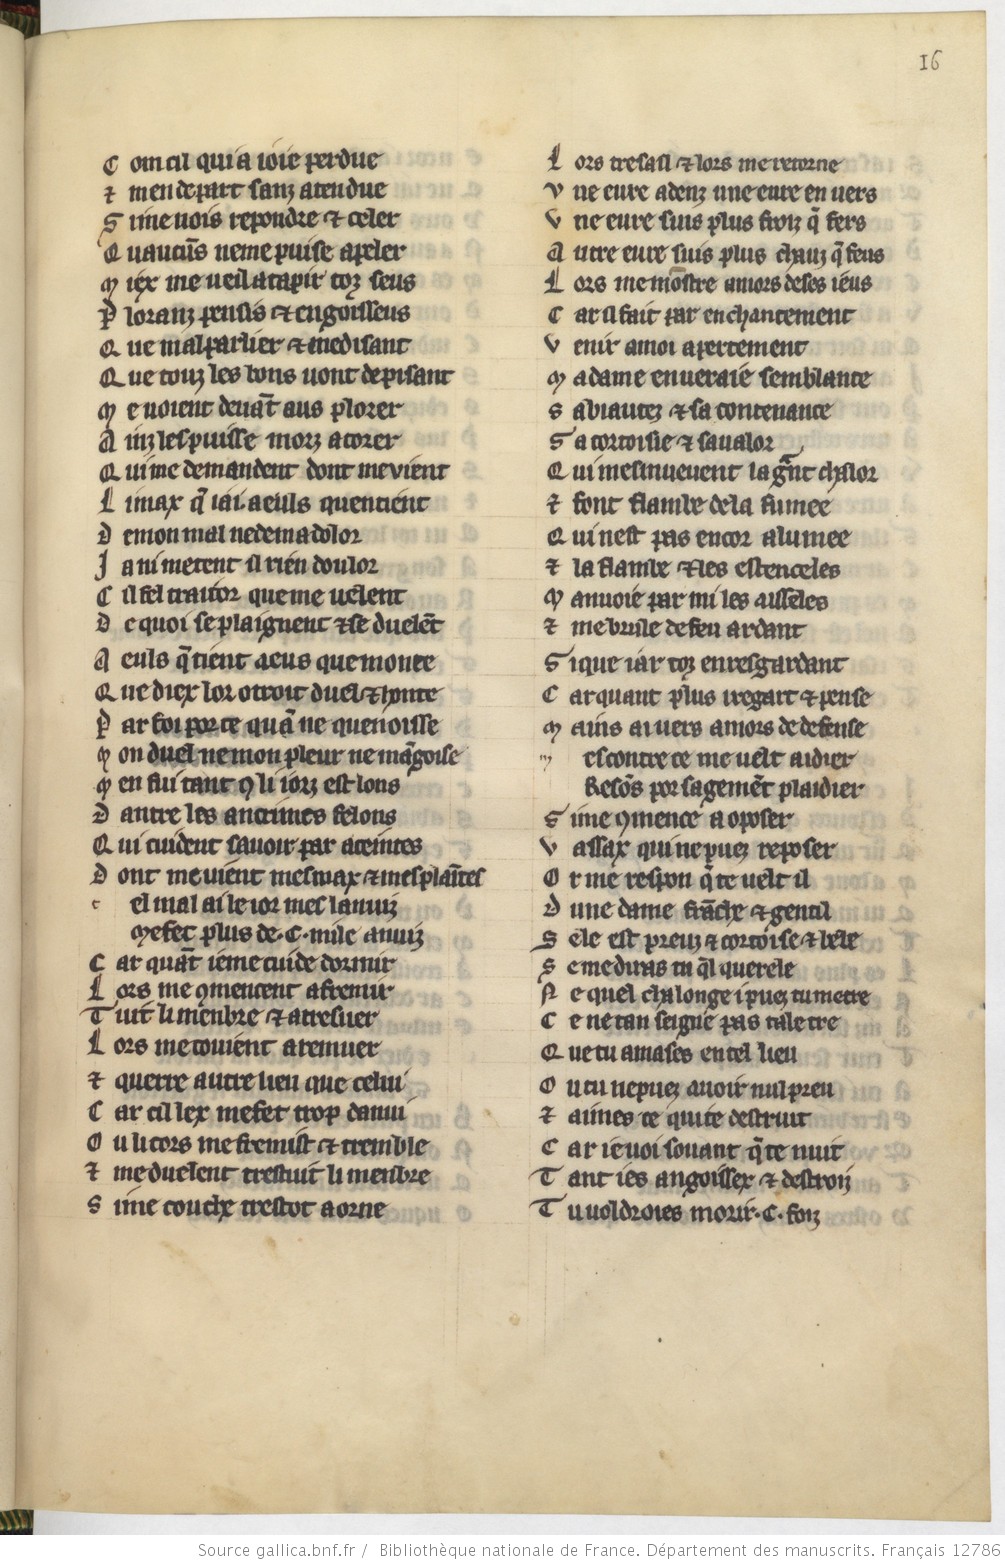 16
Com cil qui a ioie perdue
⁊ men depart sanz atendue
Si me uois repondre ⁊ celer
Quaucūs ne me puise apeler
Miex me ueil atapir toz seus
Ploranz pensis ⁊ engoisseus
Que mal parlier ⁊ medisant
Que touz les bons uont depisant
Me uoient deuāt aus plorer
Ainz les puisse morz acorer
Qui me demandent dont me uient
Li max q̄ iai a euls quentient
De mon mal ne de ma dolor
Ja ni metent il rien dou lor
Cil fel traitor que me uelent
De quoi se plaignent ⁊ se duelēt
A euls q̄ tient a eus que monte
Que diex lor otroit duel ⁊ honte
Par foi por ce quā ne quenoisse
Mon duel ne mon pleur ne māgoise
Men fui tant ꝯ li iorz est lons
Dantre les anciines felons
Qui cuident sauoir par aceintes
Dont me uient mes max ⁊ mes plaītes
c el mal ai le ior mes la nuiz
Me fet plus de .C. mile anuiz
Car quāt ie me cuide dormir
Lors me ꝯmencent a fremir
Tuit li menbre ⁊ a tresuer
Lors me couient a remuer
⁊ querre autre lieu que celui
Car cil lex me fet trop danui
Ou li cors me fremist ⁊ tremble
⁊ me duelent trestuit li menbre
Si me couche trestot a orne
Lors tresail ⁊ lors me retorne
Vne eure adenz une eure en uers
Vne eure suis plus froiz q̄ fers
Autre eure suis plus chauz q̄ feus
Lors me mostre amors de ses ieus
Car il fait par enchantement
Venir a moi apertement
Ma dame en ueraie semblance
Sa biautez ⁊ sa contenance
Sa cortoisie ⁊ sa ualor
Qui mesmueuent la gr̄nt chalor
⁊ font flambe de la fumee
Qui nest pas encor alumee
⁊ la flambe ⁊ les estenceles
Manuoie par mi les aisseles
⁊ me brusle de feu ardant
Si que iar toz en resgardant
Car quant plus i regart ⁊ pense
Mains ai uers amors de defense
m es contre ce me uelt aidier
Resōs por sagemēt plaidier
Si me ꝯmence a oposer
Vassax qui ne puez reposer
Or me respon q̄ te uelt il
Dune dame frāche ⁊ gentil
Sele est preuz ⁊ cortoise ⁊ bele
Se me diras tu q̄l querele
Ne quel chalonge i puez tu metre
Ce ne tan seigne pas ta letre
Que tu amases en tel lieu
Ou tu ne puez auoir nul preu
⁊ aimes ce qui te destruit
Car ie uoi souant q̄ te nuit
Tant ies angoissex ⁊ destroiz
Tu uoldroies morir .C. foiz
Source gallica.bnf.fr / Bibliothèque nationale de France. Département des manuscrits. Français 12786